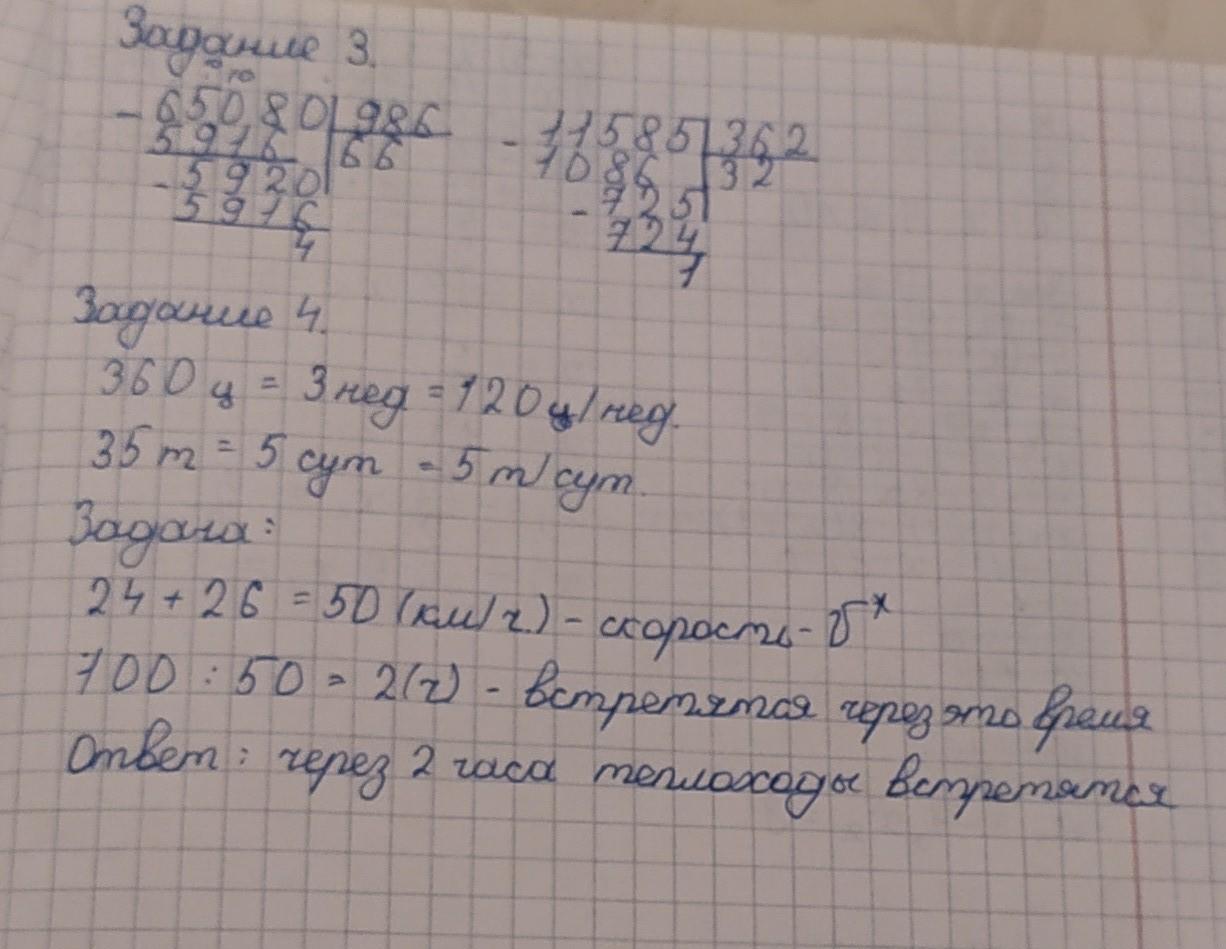 Задание 3.
- 65080 | 986 - 11585 | 362
5916 | 66 1086 | 32
- 5920 - 725
5916 724
4 1
Задание 4.
360 ц = 3 нед = 120 ц/нед.
35 т = 5 сут = 5 т/сут.
Задача:
24 + 26 = 50 (км/ч.) - скорость - υ*
100 : 50 = 2(ч) - встретятся через это время
Ответ: через 2 часа теплоходы встретятся